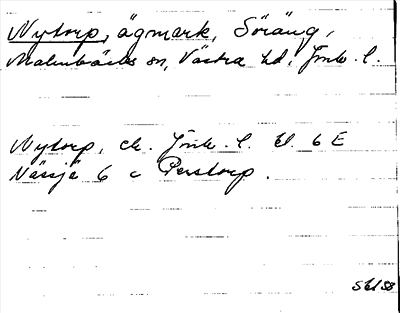 Nytorp, ägmark, Söräng,
Malmbäcks sn, Västra hd, Jönk. l.
Nytorp, ek. Jönk. l. bl. 6 E
Nässjö 6 c Perstorp.